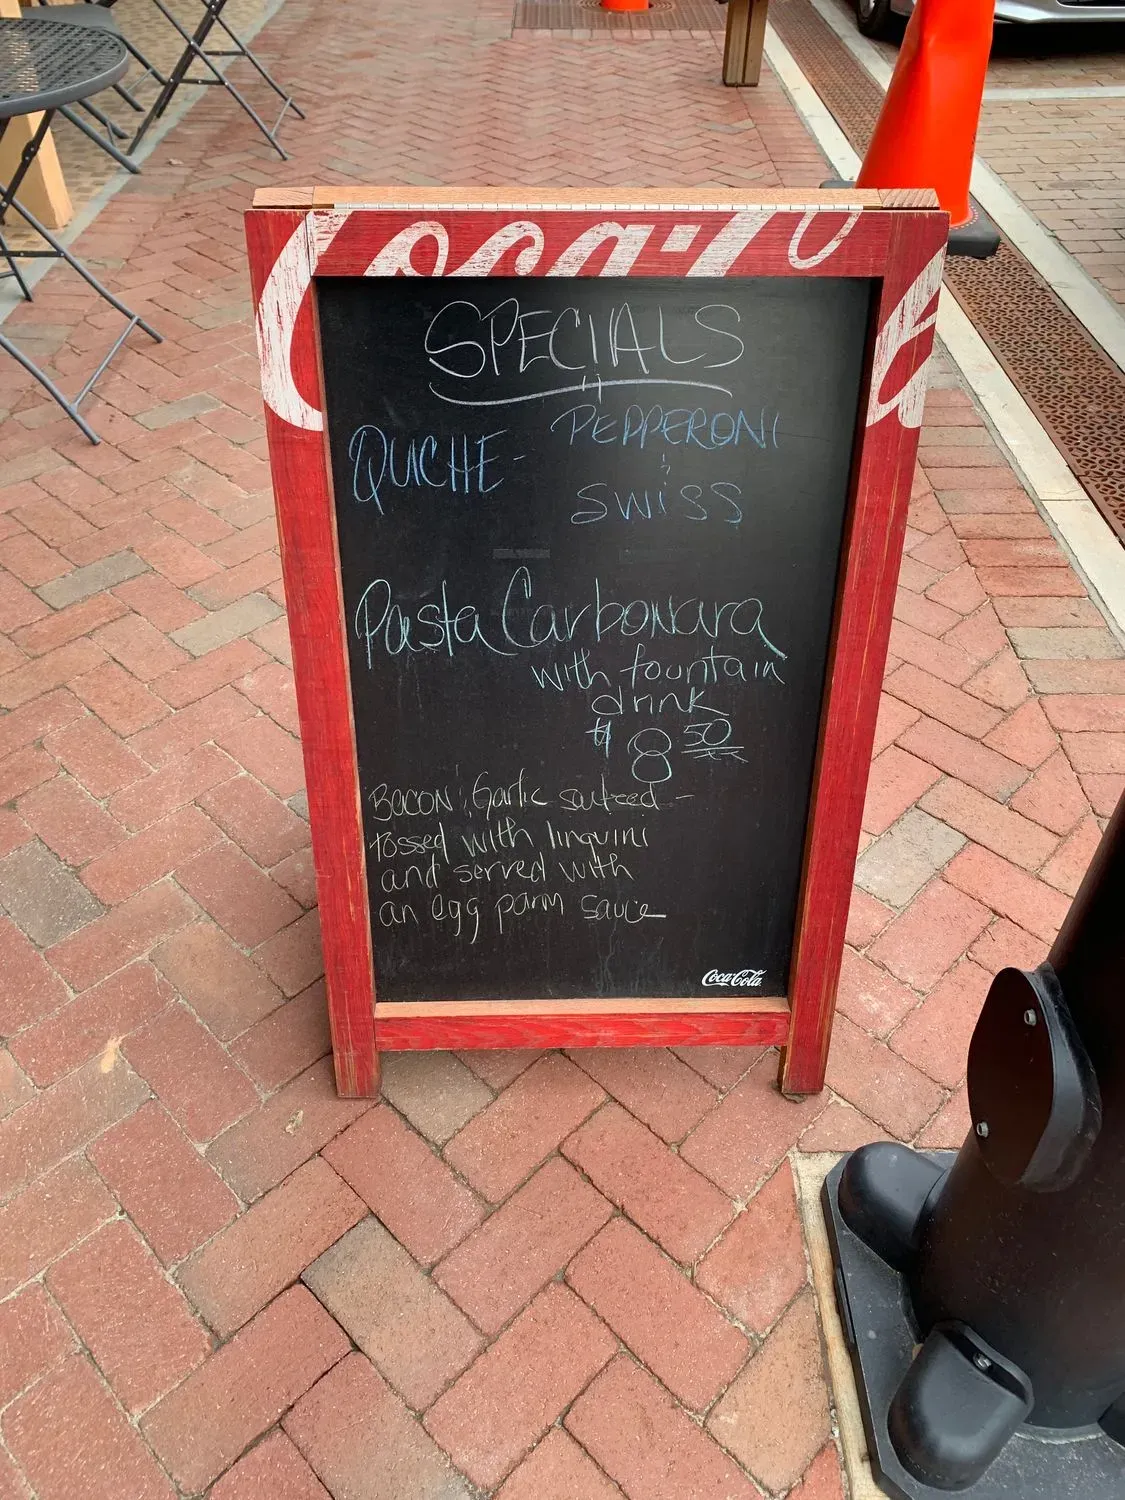 Coca-Cola
SPECIALS
QUICHE - PEPPERONI
&
SWISS
Pasta Carbonara
with fountain
drink
$8 50
Bacon & Garlic sauteed -
tossed with linguini
and served with
an egg parm sauce
Coca-Cola